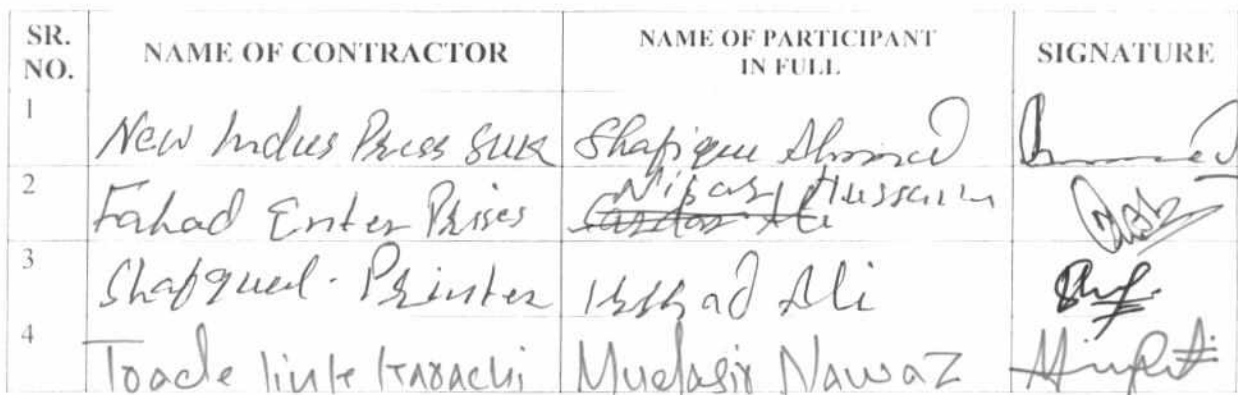 SR. NO. NAME OF CONTRACTOR NAME OF PARTICIPANT IN FULL SIGNATURE
1 New Indus Press Suk Shafique Ahmed
2 Fahad Enter Prises Nisar Hussain
3 Printer Irshad Ali
4 Trade link Karachi Mudasir Nawaz